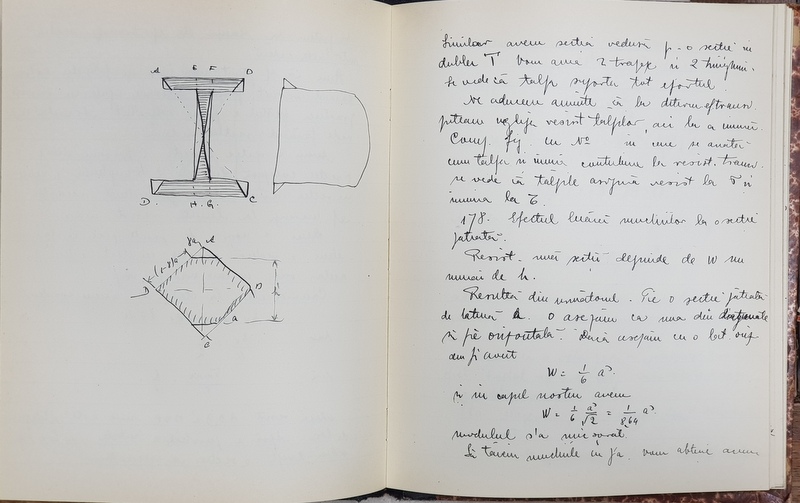 A E F D
D. H. G. C
γa A
D B
a
B
Similar avem secția văzută p. o secție in
dublu T Vom avea 2 trapeze si 2 triughiuri.
Se vede că talp suporta tot efortul.
Ne aducem aminte că la determ ef transv.
puteam neglija resist talpilor, aci la a inimii.
Comp. fig. cu No in care se arată
cum talpa si inima contribue la resist. transv.
se vede că tălpile asigură resist la σ si
inima la τ.
178. Efectul luării muchiilor la o secție
patrată.
Resist. unei secții depinde de W nu
numai de h.
Resultă din următorul. Fie o secție pătrată
de latură a. O așezăm ca una din diagonale
să fie orizontală. Dacă așezăm cu o lat. oriz
am fi avut
W = 1/6 a³.
si in cazul nostru avem
W = 1/6 a³/√2 = 1/8,64 a³
modulul s'a micșorat.
Să tăiem muchiile cu γa. vom obține